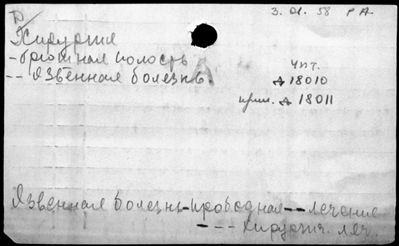 3. 01. 58 Р А.
Хирургия
- брюшная полость
-- Язвенная болезнь.
Чит.
Д 18010
прил. Д 18011
Язвенная болезнь - прободная -- лечение
- - - Хирургич. леч.